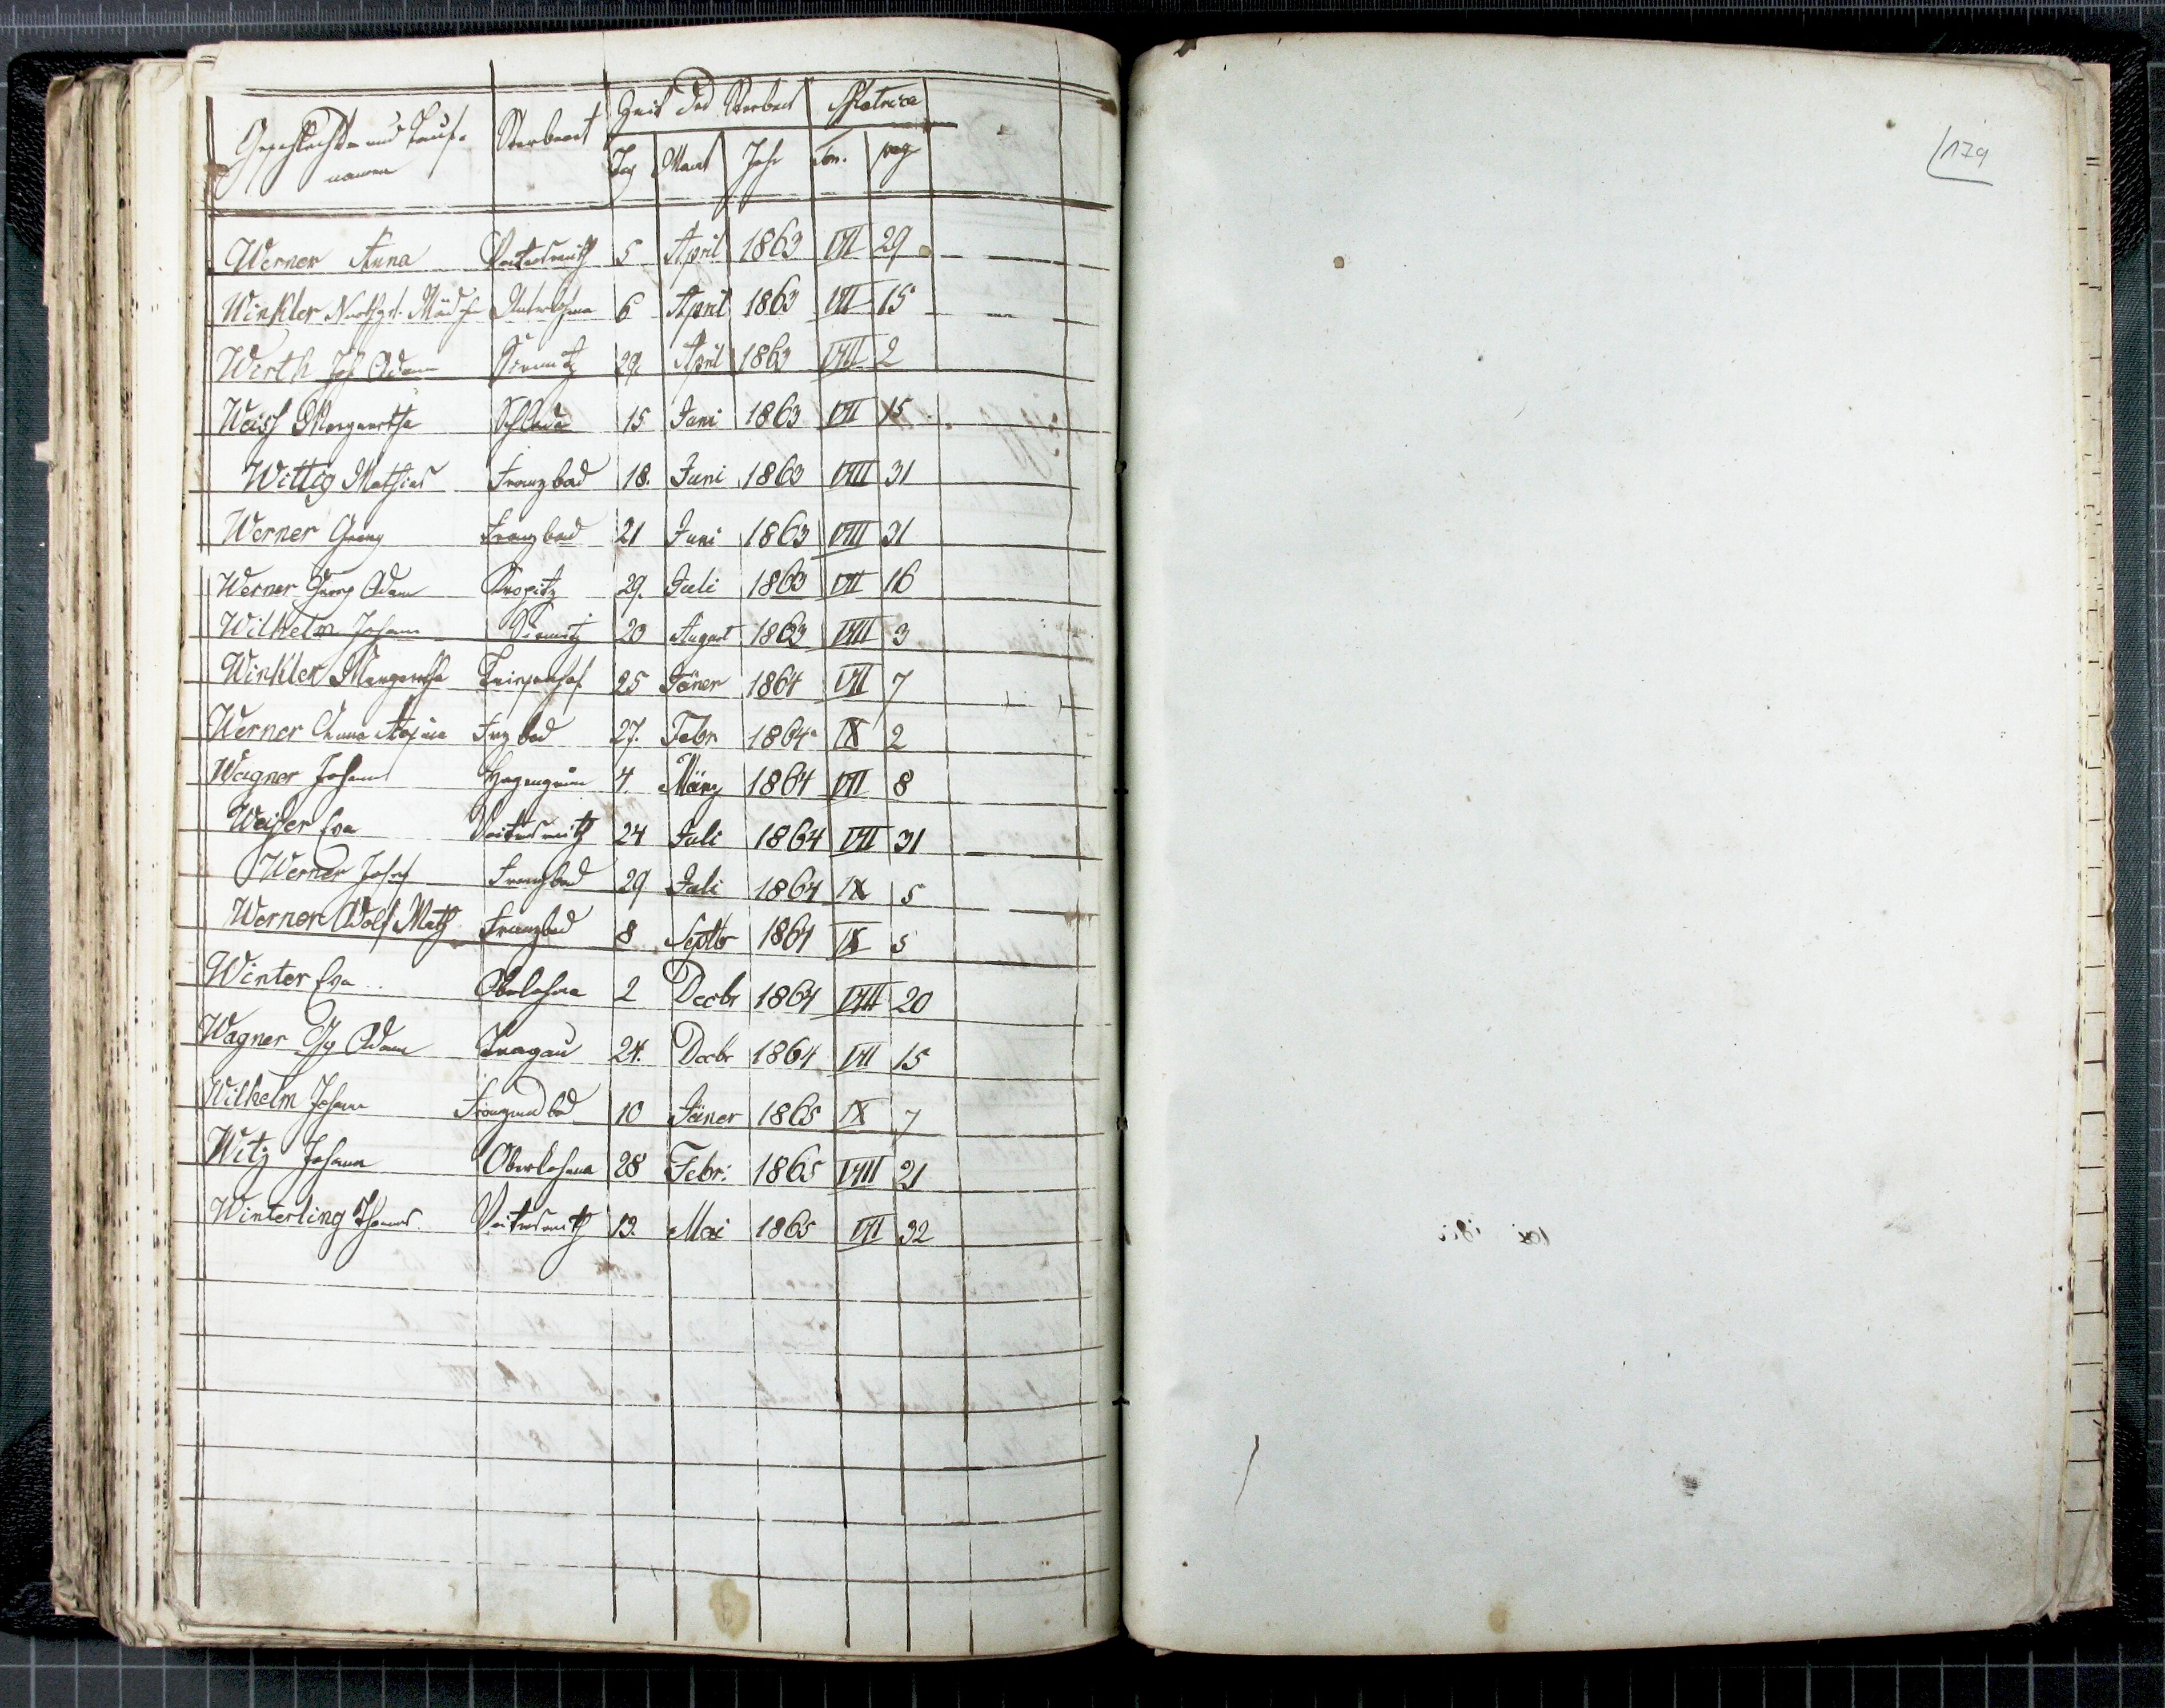 Geschlechts- und Tauf- Sterbeort Zeit des Sterbens Matrica
namen Tag Monat Jahr Tom. pag
179
Werner Anna Voitersreuth 5 April 1863 VII 29
Winkler Nothget. Mädch Unterlohma 6 April 1863 VII 15
Wirth Joh Adam Sirmitz 29. April 1863 VIII 2
Weiss Margaretha Schlada 15 Juni 1863 VII 15
Wittig Mathias Franzbad 18. Juni 1863 VIII 31
Werner Georg Franzbad 21 Juni 1863 VIII 31
Werner Georg Adam Kropitz 29. Juli 1863 VII 16
Wilhelm Johann Sirmitz 20 August 1863 VIII 3
Winkler Margaretha 25 Jäner 1864 VII 7
Werner Anna Frzbad 27. Febr 1864 IX 2
Wagner Johann Hagengrün 4. März 1864 VII 8
Weiser Eva Voitersreuth 24 Juli 1864 VII 31
Werner Josef Franzbad 29 Juli 1864 IX 5
Werner Adolf Math Franzbad 8 Septbr 1864 IX 5
Winter Eva Oberlohma 2 Decbr 1864 VIII 20
Wagner Gg Adam Tragau 24. Decbr 1864 VII 15
Wilhelm Johann Franzensbad 10 Jäner 1865 IX 7
Witz Johann Oberlohma 28 Febr. 1865 VIII 21
Winterling Thomas Voitersreuth 13. Mai 1865 VII 32